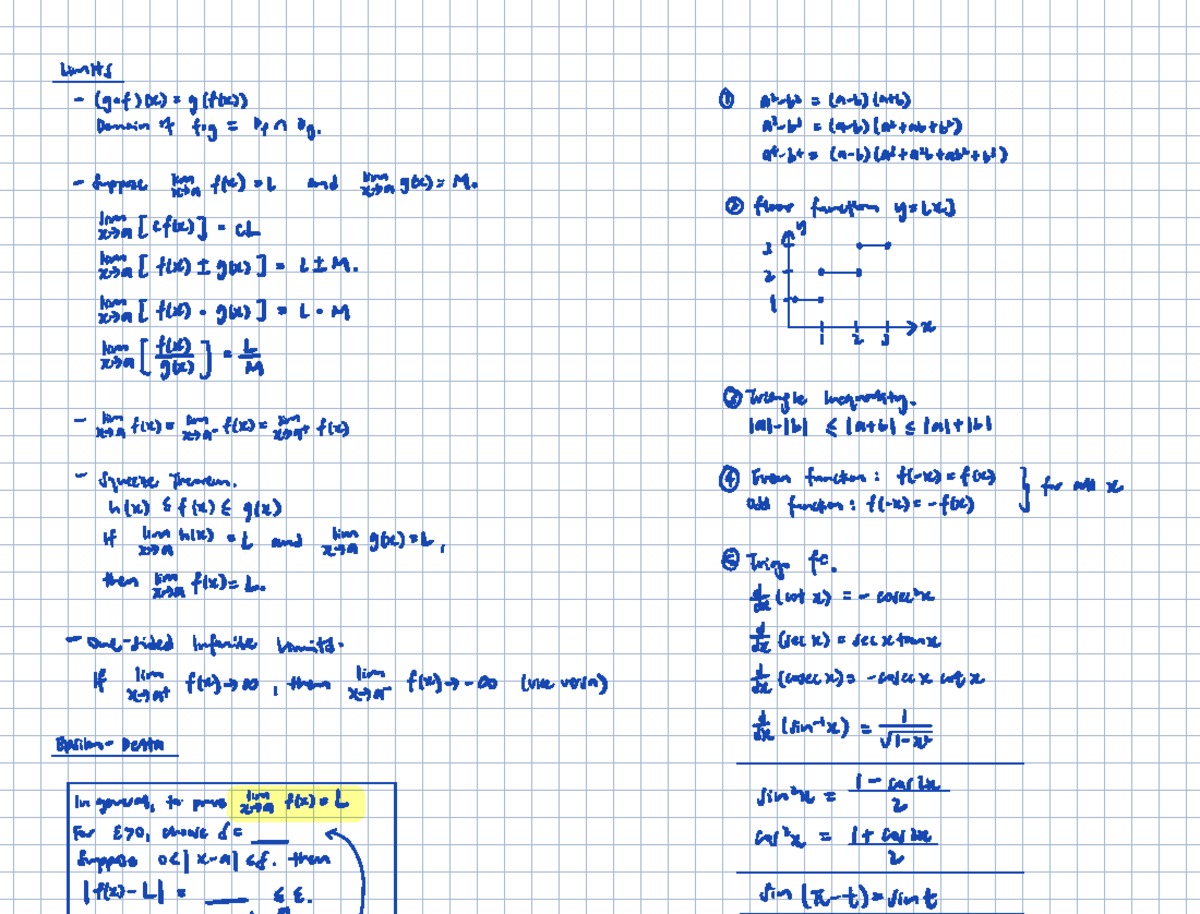 Limits
- (g∘f)(x) = g(f(x))
Domain of f∘g = Df ∩ Dg.
- Suppose lim x→a f(x) = L and lim x→a g(x) = M.
lim x→a [cf(x)] = cL
lim x→a [f(x) ± g(x)] = L ± M.
lim x→a [f(x) · g(x)] = L · M
lim x→a [f(x)/g(x)] = L/M
- lim x→a f(x) = lim x→a⁻ f(x) = lim x→a⁺ f(x)
- Squeeze Theorem.
h(x) ≤ f(x) ≤ g(x)
If lim x→a h(x) = L and lim x→a g(x) = L,
then lim x→a f(x) = L.
- One-sided Infinite Limits.
If lim x→a⁺ f(x) → ∞, then lim x→a⁻ f(x) → -∞ (vice versa)
Epsilon-Delta
In general, to prove lim x→a f(x) = L
For ε>0, choose δ = ___
Suppose 0<|x-a|<δ. then
|f(x)-L| = ___ ≤ ε.
① a²-b² = (a-b)(a+b)
a³-b³ = (a-b)(a²+ab+b²)
a⁴-b⁴ = (a-b)(a³+a²b+ab²+b³)
② floor function y=⌊x⌋
y
3
2
1
1 2 3 x
③ Triangle Inequality.
|a|-|b| ≤ |a+b| ≤ |a|+|b|
④ Even function : f(-x) = f(x) } for all x
odd function : f(-x) = -f(x)
⑤ Trigo fc.
d/dx (cot x) = - cosec²x
d/dx (sec x) = sec x tan x
d/dx (cosec x) = -cosec x cot x
d/dx (sin⁻¹x) = 1/√(1-x²)
sin²x = (1 - cos 2x)/2
cos²x = (1 + cos 2x)/2
sin (π-t) = sin t